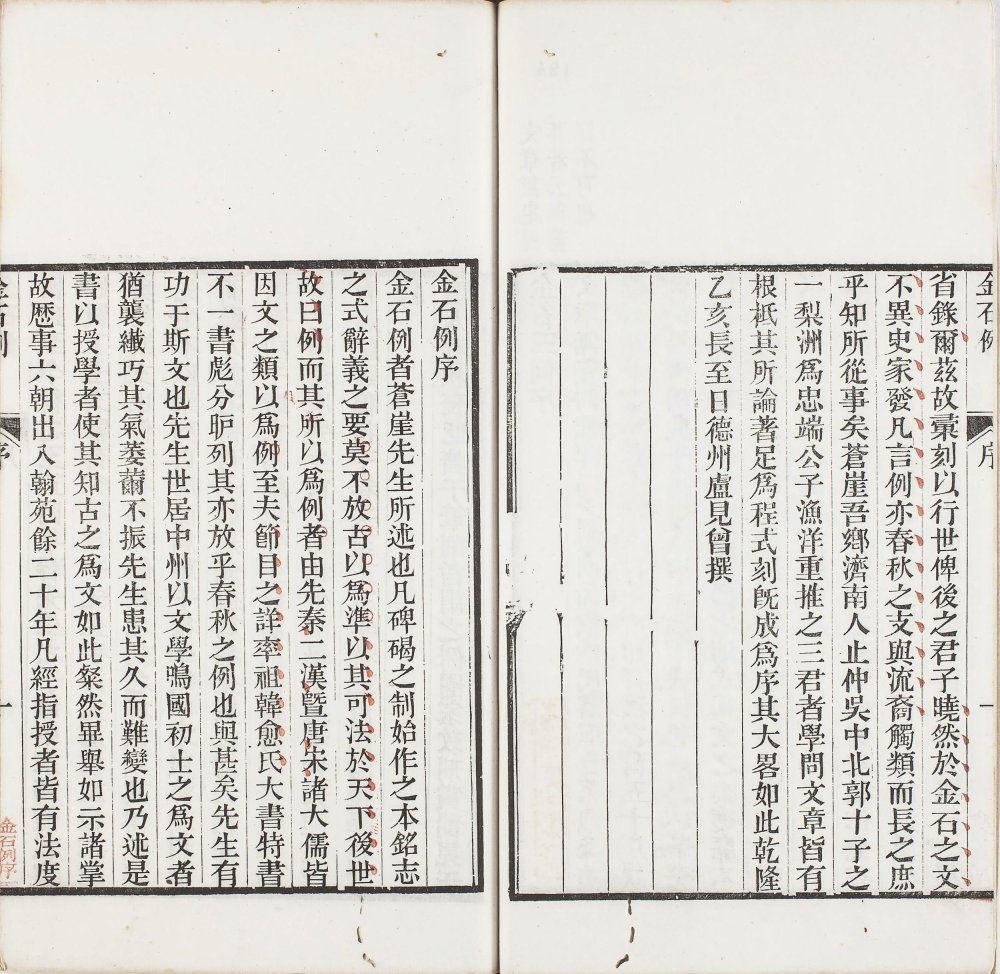 金石例
序
一
省錄爾茲故彙刻以行世俾後之君子曉然於金石之文
不異史家發凡言例亦春秋之支與流裔觸類而長之庶
乎知所從事矣蒼崖吾鄉濟南人止仲吳中北郭十子之
一梨洲爲忠端公子漁洋重推之三君者學問文章皆有
根柢其所論著足爲程式刻既成爲序其大畧如此乾隆
乙亥長至日德州盧見曾撰
金石例序
金石例者蒼崖先生所述也凡碑碣之制始作之本銘志
之式辭義之要莫不放古以爲準以其可法於天下後世
故曰例而其所以爲例者由先秦二漢暨唐宋諸大儒皆
因文之類以爲例至夫節目之詳率祖韓愈氏大書特書
不一書彪分昈列其亦放乎春秋之例也與甚矣先生有
功于斯文也先生世居中州以文學鳴國初士之爲文者
猶襲纖巧其氣萎薾不振先生患其久而難變也乃述是
書以授學者使其知古之爲文如此粲然畢舉如示諸掌
故歷事六朝出入翰苑餘二十年凡經指授者皆有法度
金石例
序
一
金石例序